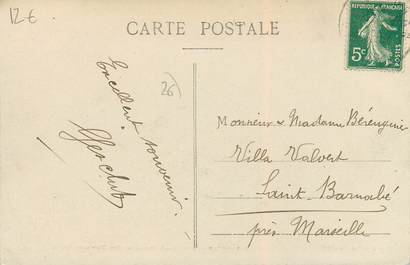 12€
CARTE POSTALE
REPUBLIQUE FRANÇAISE
5c
26
Excellent souvenir.
Monsieur & Madame Bérenguier
Villa Valvert
Saint Barnabé
près Marseille